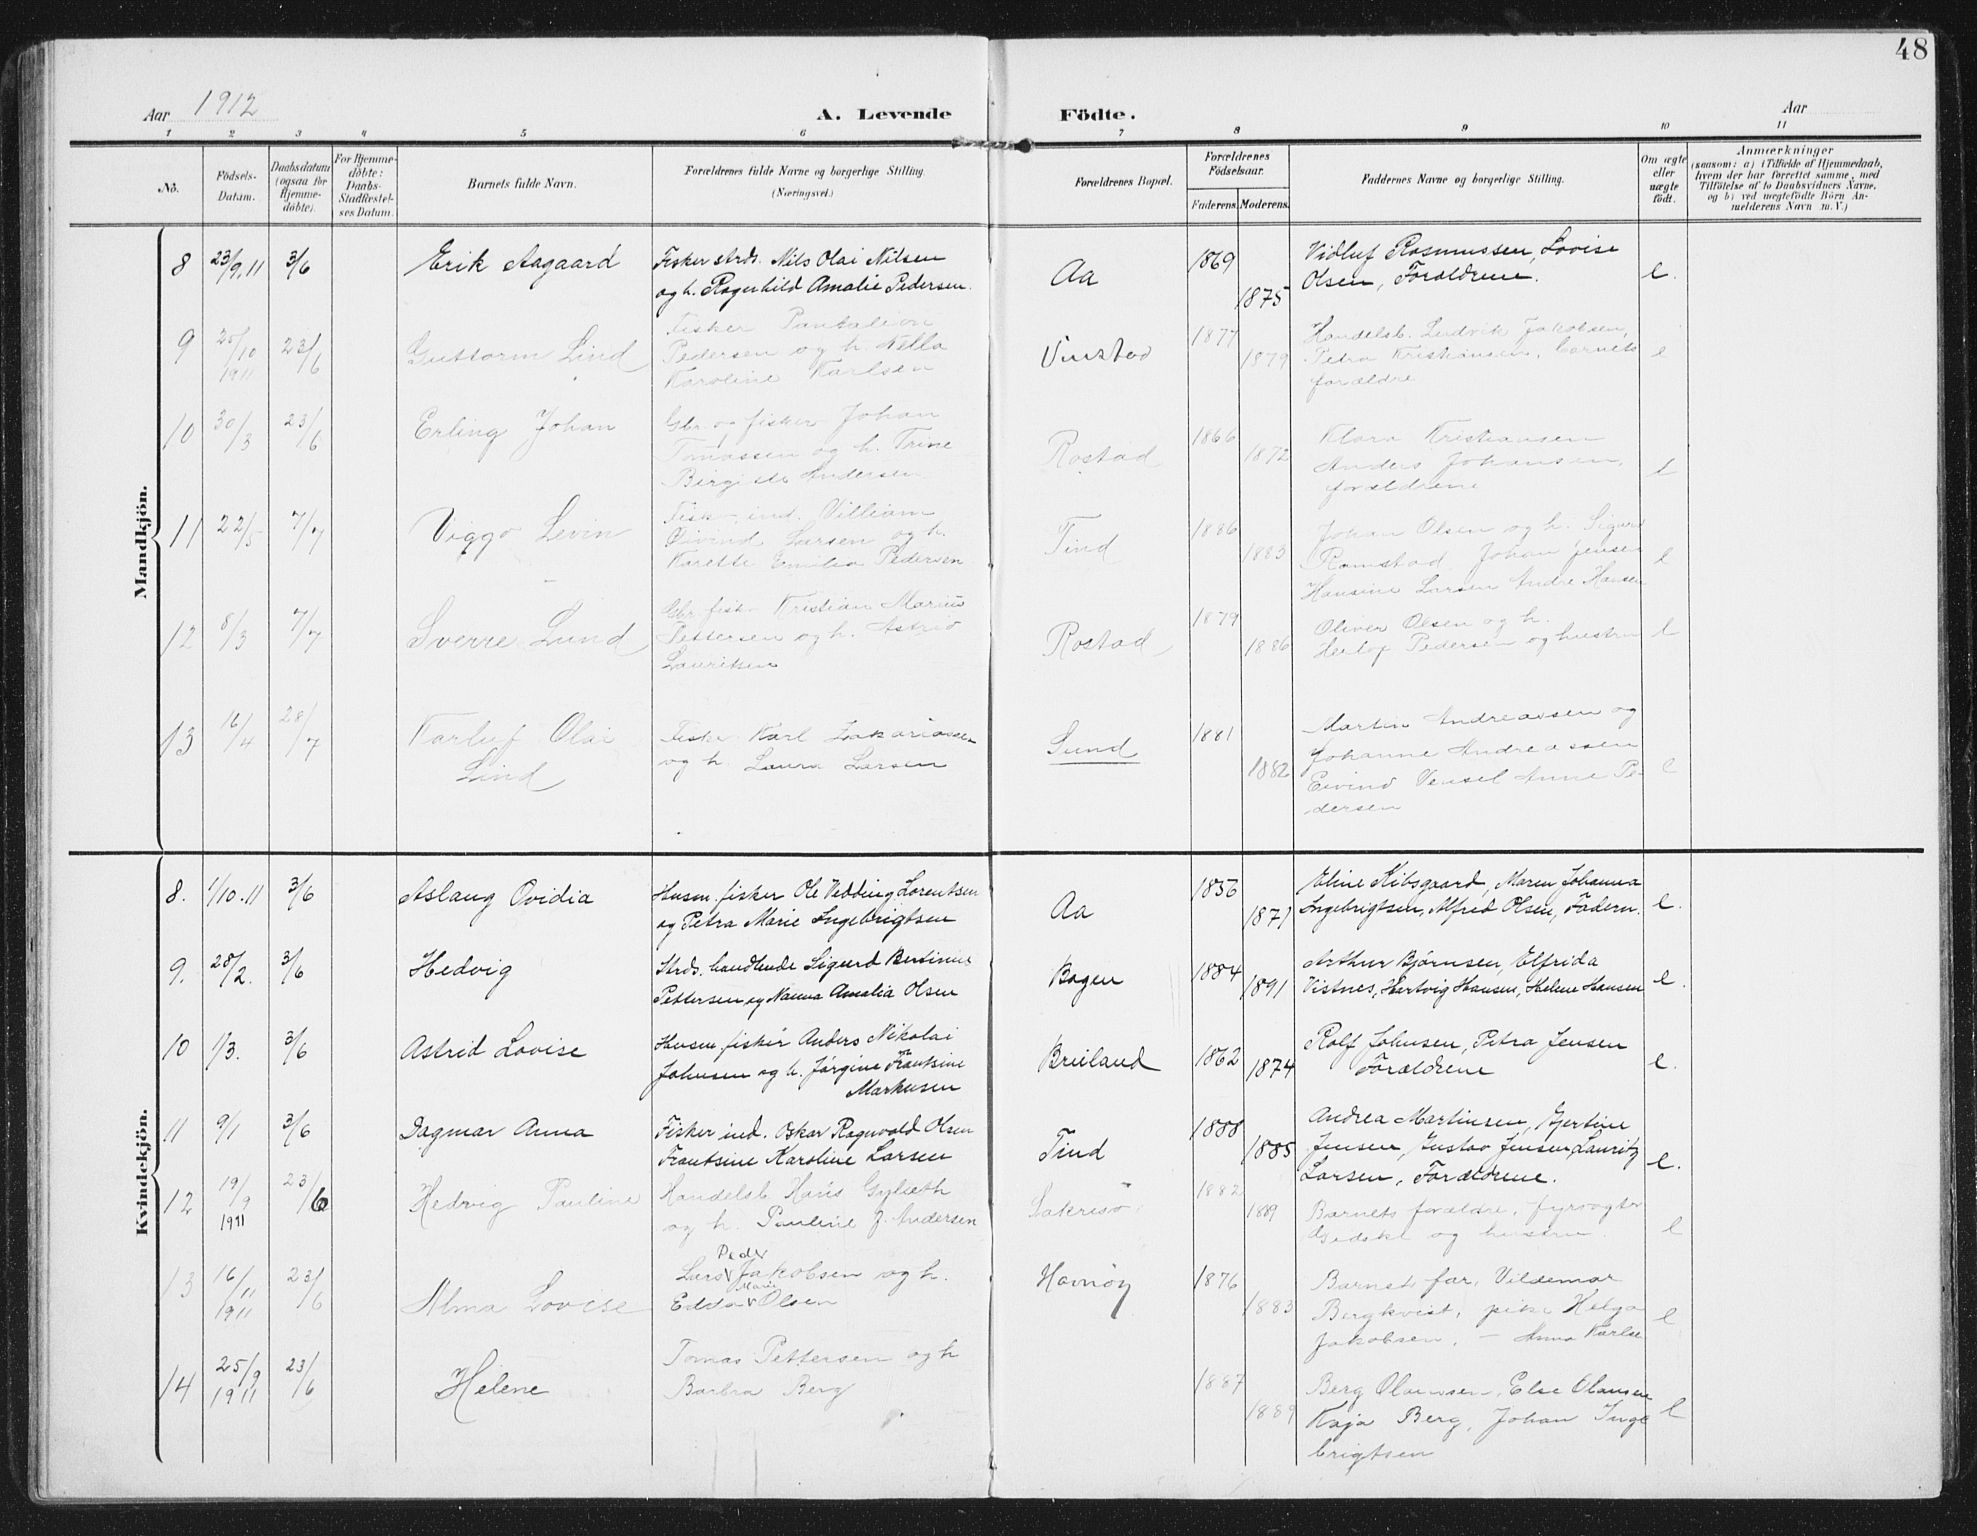 48
Aar 1912
A. Levende Födte.
Aar
1 2 3 4 5 6 7 8 9 10 11
No.
Födsels-Datum.
Daabsdatum (ogsaa for Hjemme-döbte).
For Hjemme-döbte: Daabs-Stadfæstel-ses Datum.
Barnets fulde Navn.
Forældrenes fulde Navne og borgerlige Stilling. (Næringsvei.)
Forældrenes Bopæl.
Forældrenes Födselsaar.
Faderens. Moderens.
Faddernes Navne og borgerlige Stilling.
Om ægte eller uægte födt.
Anmærkninger
(saasom: a) i Tilfælde af Hjemmedaab,
hvem der har forrettet samme, med
Tilföielse af to Daabsvidners Navne,
og b) ved uægtefödte Börn An-
melderens Navn m. V.)
Mandkjön.
8 23/9.11 3/6 Erik Aagaard Fisker strds. Nils Olai Nilsen Aa 1869 Vidluf Rasmussen, Lovise
og h. Ragnhild Amalie Pedersen. 1875 Olsen, Forældrene. e.
9 20/10 1911 23/6 Guttorm Lind Fisker Pantalion Vinstad 1877 Handelsb. Ludvik Jakobsen,
Pedersen og h. Nella 1879 Petra Kristiansen, barnets e
Karoline Karlsen forældre
10 30/3 23/6 Erling Johan Gbr. og fisker Johan Rostad 1866 Klara Kristiansen
Tomassen og h. Trine 1872 Anders Johansen,
Andersen forældrene e
11 22/5 7/7 Viggo Levin Fisk. ind. Villiam Tind 1886 Johan Olsen og h. Sigurd
Øivind Larsen og h. 1883 Ramstad Johan Jensen e
Karette Emilia Pedersen Hansine Larsen Andre Hansen
12 8/3 7/7 Sverre Lund Gbr. fisk. Kristian Marius Rostad 1879 Oliver Olsen og h.
Pettersen og h. Astrid 1886 Pedersen og hustru e
Lauritsen
13 16/4 28/7 Karluf Olai Lind Fisker Karl Zakariassen Sund 1881 Martin Andreassen og
og h. Laura Larsen 1882 Johanne Andreassen
Eivind Vensel Anne Pe- e
dersen
Kvindekjön.
8. 1/10.11 3/6 Aslaug Ovidia Husm. fisker Ole Vedding Lorentsen Aa 1856 Eline Kibsgaard, Maren Johanna
og Petra Marie Ingebrigtsen 1871 Ingebrigtsen, Alfred Olsen, Fadern. e.
9. 28/2. 3/6 Hedvig Strds. handlende Sigurd Bertinius Bogen 1884 Arthur Bjørnsen, Elfrida
Pettersen og Nanna Amalia Olsen 1891 Vistnes, Hartvig Hansen, Helene Hansen e.
10 1/3. 3/6 Astrid Lovise Husm. fisker Anders Nikolai Breiland 1862 Rolf Johnsen, Petra Jensen
Johnsen og h. Jørgine Frantsine 1874 Forældrene e.
Markusen
11 9/1 3/6 Dagmar Anna Fisker ind. Oskar Ragnvald Olsen Tind 1888 Andrea Martinsen, Hjertine
Frantsine Karoline Larsen 1885 Jensen, Gustav Jensen, Lauritz
Larsen, Forældrene. e.
12 19/9 1911 23/6 Hedvig Pauline Handelsb. Hans Gylseth Sakrisø 1882 Barnets forældre, fyrvogter
og h. Pauline J. Andersen 1889 Gidske og hustru e
13 16/11 1911 23/6 Alma Lovise Lars Peder Jakobsen og h. Havnøy 1876 Barnets far, Vildemar
Edda Marie Olsen 1883 Bergkvist, pike Helga e
Jakobsen, — Anna Karlse
14 25/9 1911 23/6 Helene Tomas Pettersen og h 1887 Berg Olaussen, Else Olausen
Barbra Berg 1889 Kaja Berg, Johan Inge e
brigtsen